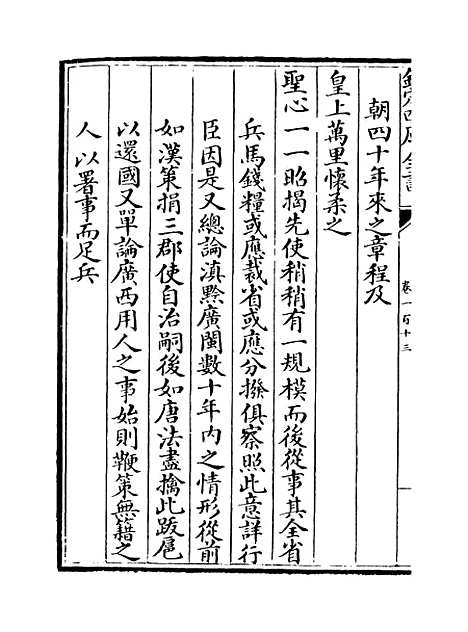 欽定四庫全書
卷一百十三
朝四十年來之章程及
皇上萬里懷柔之
聖心一一昭揭先使稍稍有一規模而後從事其全省
兵馬錢糧或應裁省或應分撥俱察照此意詳行
臣因是又總論滇黔廣閩數十年內之情形從前
如漢策捐三郡使自治嗣後如唐法盡擒此跋扈
以還國又單論廣西用人之事始則鞭策無籍之
人以署事而足兵